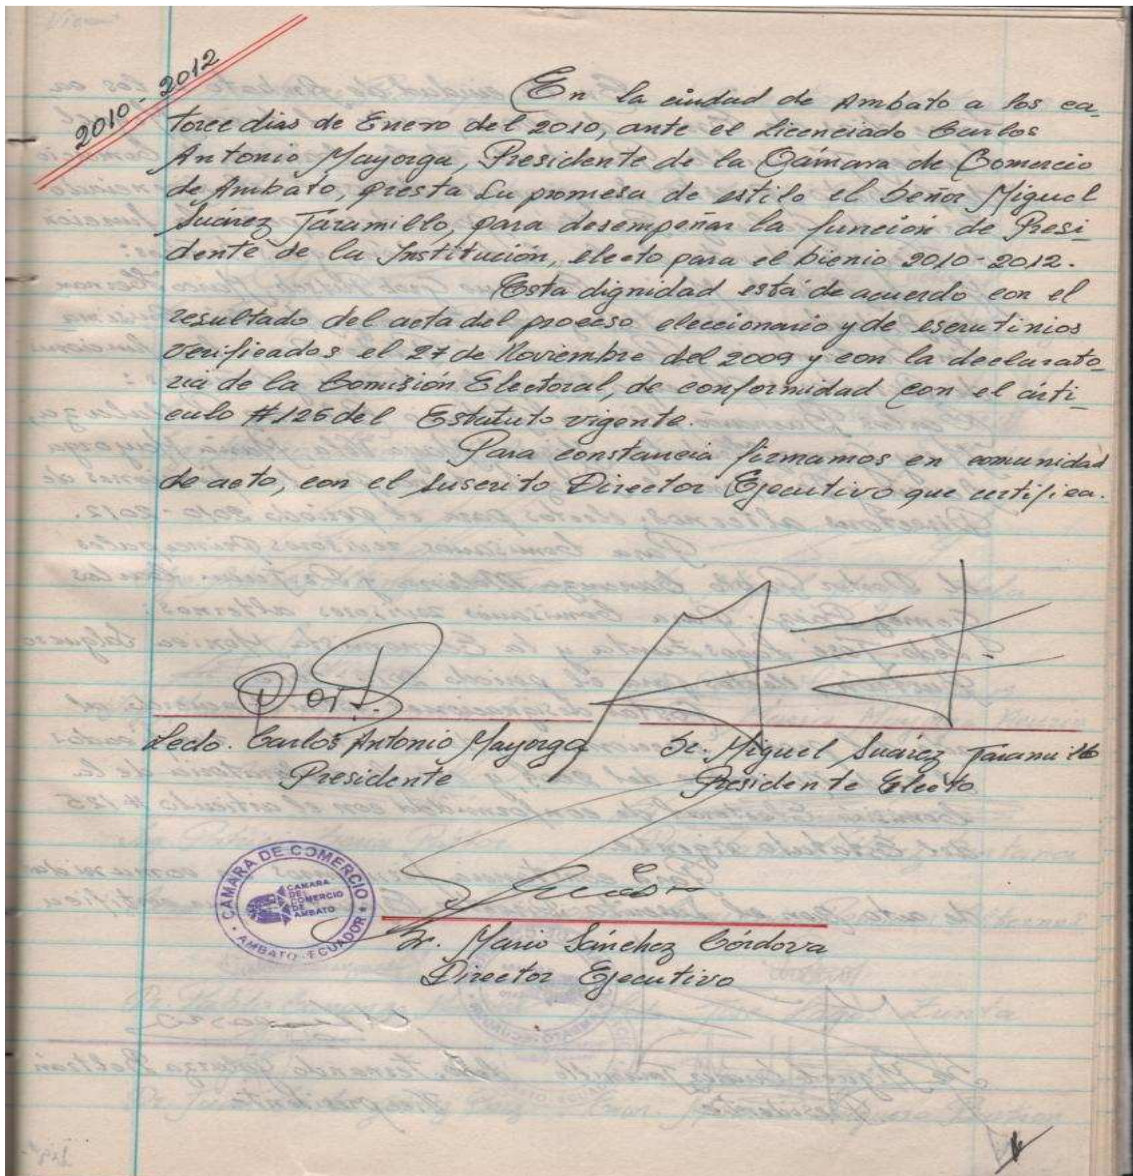 2010-2012
En la ciudad de Ambato a los ca_
torce dias de Enero del 2010, ante el Licenciado Carlos
Antonio Mayorga, Presidente de la Cámara de Comercio
de Ambato, presta su promesa de estilo el Señor Miguel
Suárez Jaramillo, para desempeñar la función de Presi_
dente de la Institución, electo para el bienio 2010-2012.
Esta dignidad está de acuerdo con el
resultado del acta del proceso eleccionario y de escrutinios
verificados el 27 de Noviembre del 2009 y con la declarato_
ria de la Comisión Electoral, de conformidad con el árti_
culo #125 del Estatuto vigente.
Para constancia firmamos en comunidad
de acto, con el suscrito Director Ejecutivo que certifica.
Lcdo. Carlos Antonio Mayorga
Presidente
Sr. Miguel Suárez Jaramillo
Presidente Electo
CÁMARA DE COMERCIO
CAMARA
DE
COMERCIO
DE
AMBATO
AMBATO - ECUADOR
Dr. Mario Sánchez Córdova
Director Ejecutivo